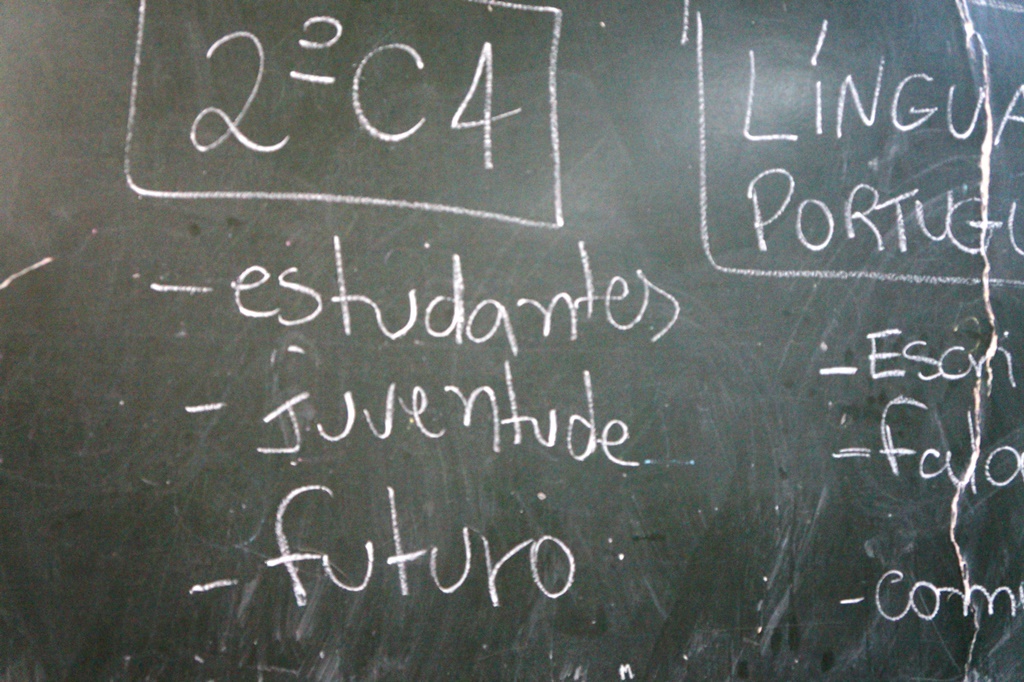 2º C4
- estudantes
- Juventude
- futuro
LÍNGUA
PORTUGU
- Escri
- fala
- comu